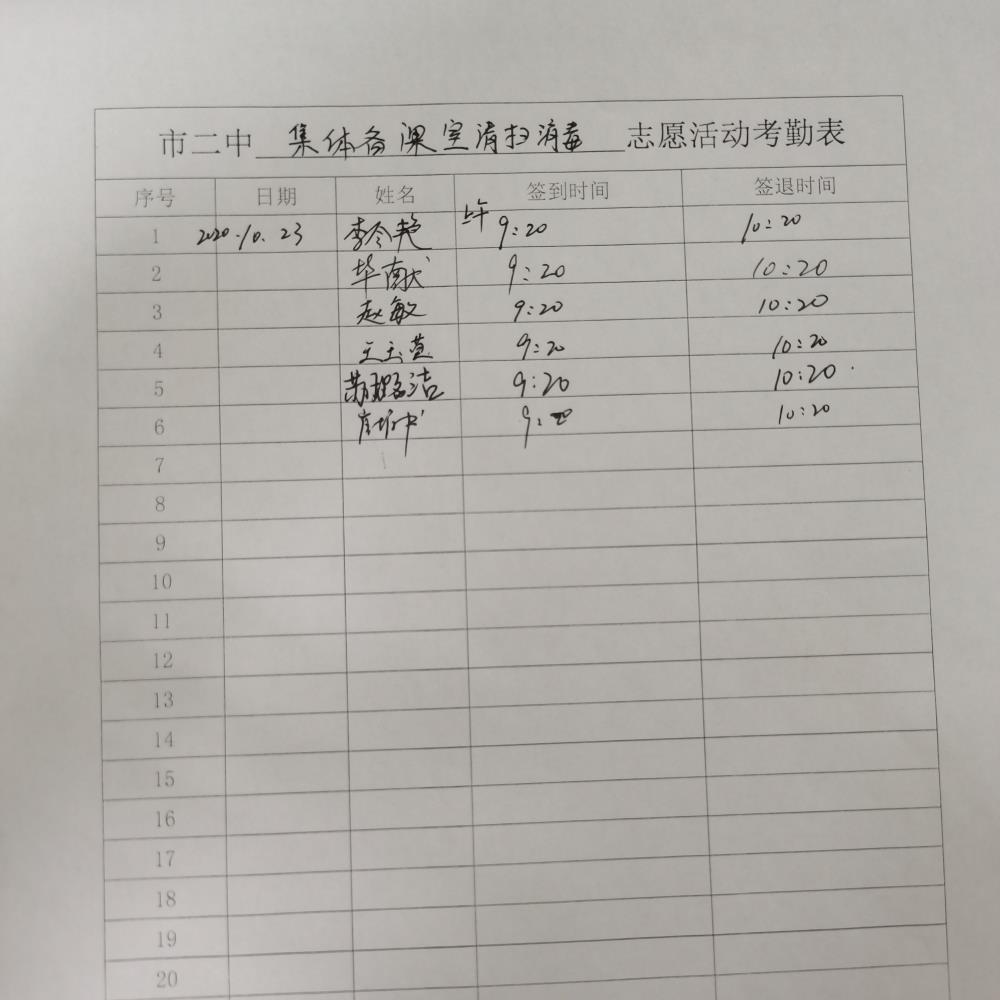 市二中 集体备课室清扫消毒 志愿活动考勤表
序号 日期 姓名 签到时间 签退时间
1 2020.10.23 李令艳 上午 9:20 10:20
2 9:20 10:20
3 赵敏 9:20 10:20
4 王玉萱 9:20 10:20
5 9:20 10:20
6 9:20 10:20
7
8
9
10
11
12
13
14
15
16
17
18
19
20